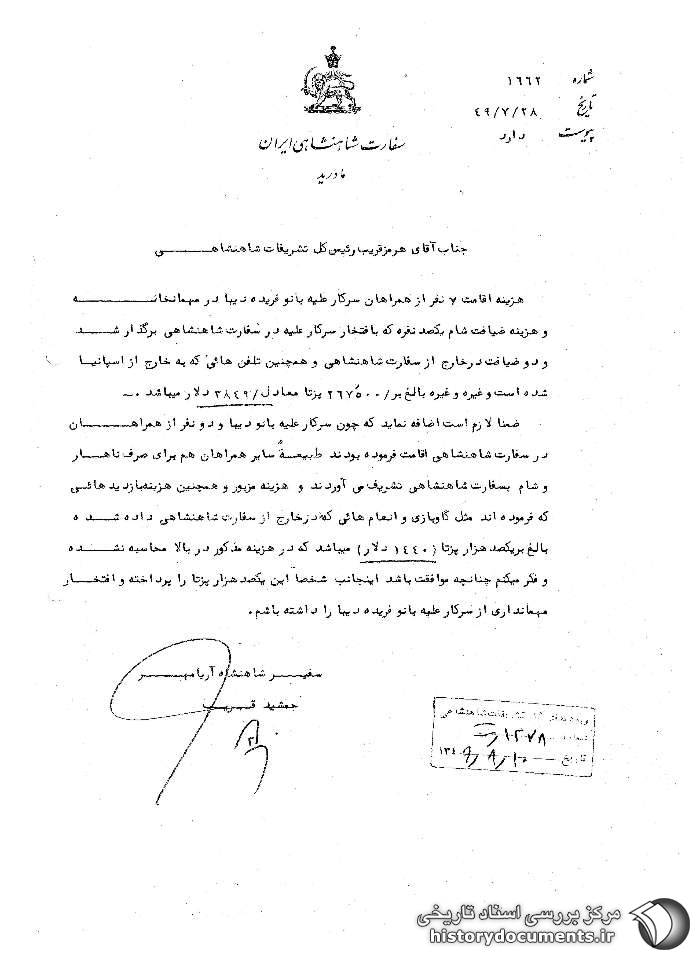 شماره ۱۶۶۲
تاریخ ۴۹/۷/۲۸
پیوست دارد
سفارت شاهنشاهی ایران
مادرید
جناب آقای هرمز قریب رئیس کل تشریفات شاهنشاهـــــی
هزینه اقامت ۷ نفر از همراهان سرکار علیه بانو فریده دیبا در مهمانخانــــــه
و هزینه ضیافت شام یکصد نفره که بافتخار سرکار علیه در سفارت شاهنشاهی برگذار شــد
و دو ضیافت درخارج از سفارت شاهنشاهی و همچنین تلفن هائی که به خارج از اسپانیـا
شده است و غیره و غیره بالغ بر/۲۶۷۵۰۰ پزتا معادل/۳۸۴۹ دلار میباشد .
ضمنا لازم است اضافه نماید که چون سرکار علیه بانو دیبا و دو نفر از همراهــــان
در سفارت شاهنشاهی اقامت فرموده بودند طبیعةً سایر همراهان هم برای صرف ناهـار
و شام بسفارت شاهنشاهی تشریف می آوردند و هزینه مزبور و همچنین هزینه بازدید هائـی
که فرموده اند مثل گاوبازی و انعام هائی که در خارج از سفارت شاهنشاهی داده شـده
بالغ بر یکصد هزار پزتا (۱۴۴۰ دلار) میباشد که در هزینه مذکور در بالا محاسبه نشـده
و فکر میکنم چنانچه موافقت باشد اینجانب شخصا این یکصد هزار پزتا را پرداخته و افتخـار
مهمانداری از سرکار علیه بانو فریده دیبا را داشته باشم.
سفیـــر شاهنشاه آریامهـــر
جمشید قـریـب
تشریفات شاهنشاهی
۱۲۷۸
تاریخ
مرکز بررسی اسناد تاریخی
historydocuments.ir